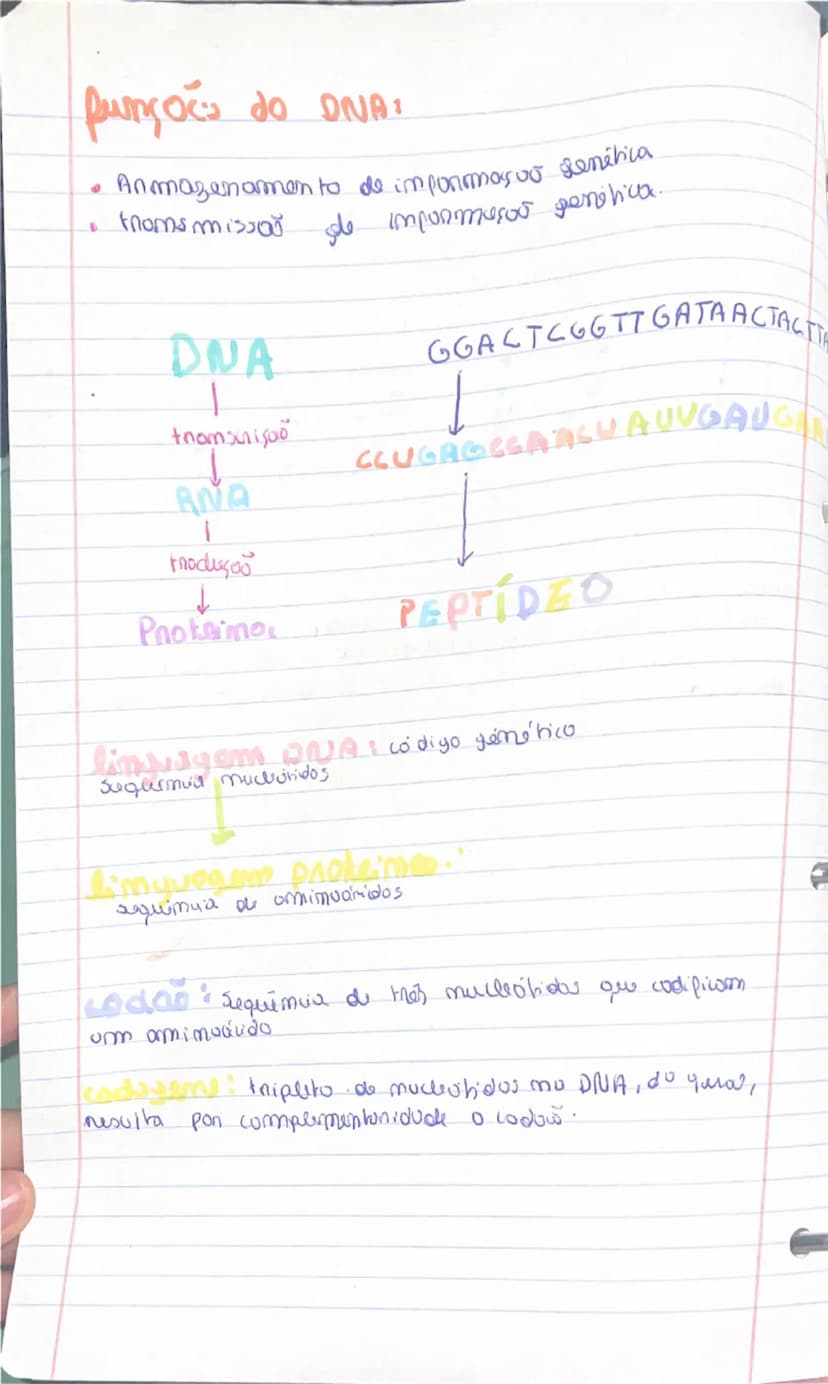 funções do DNA:
• Armazenamento de informação genética
• transmissão de informação genética.
DNA
transcrição
RNA
tradução
Proteína
GGACTCGGTTGATAACTACTT
CCUGAGCCAACUAUUGAUGAA
PEPTÍDEO
linguagem DNA: código génético
sequência nucleótidos
linguagem proteínas:
sequência de aminoácidos
codão: sequência de três nucleótidos que codificam
um aminoácido
codogene: tripleto de nucleótidos no DNA, do qual,
resulta por complementaridade o codão.